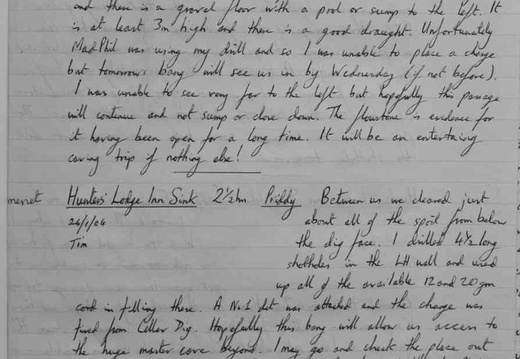 and there is a gravel floor with a pool or sump to the left. It
is at least 3m high and there is a good draught. Unfortunately
MadPhil was using my drill and so I was unable to place a charge
but tomorrows bang will see us in by Wednesday (if not before).
I was unable to see very far to the left but hopefully this passage
will continue and not sump or close down. The flowstone is evidence for
it having been open for a long time. It will be an entertaing
caving trip if nothing else!
Hunters' Lodge Inn Sink 2½hrs Priddy Between us we cleared just
26/1/04 about all of the spoil from below
Tim the dig face. I drilled 4½ long
shotholes in the LH wall and used
up all of the available 12 and 20gm
cord in filling these. A No.1 det was attached and the charge was
fired from Cellar Dig. Hopefully this bang will allow us access to
the huge master cave beyond. I may go and check the place out